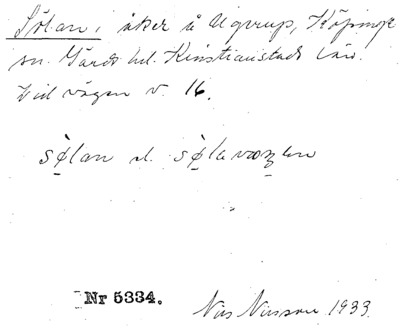 Sölan, åker å Ugerup, Köpinge
sn. Gärds hd. Kristianstads län.
Vid vägen v. 16.
sø̤lan el.
Nr 5334.
Nils Nilsson 1933